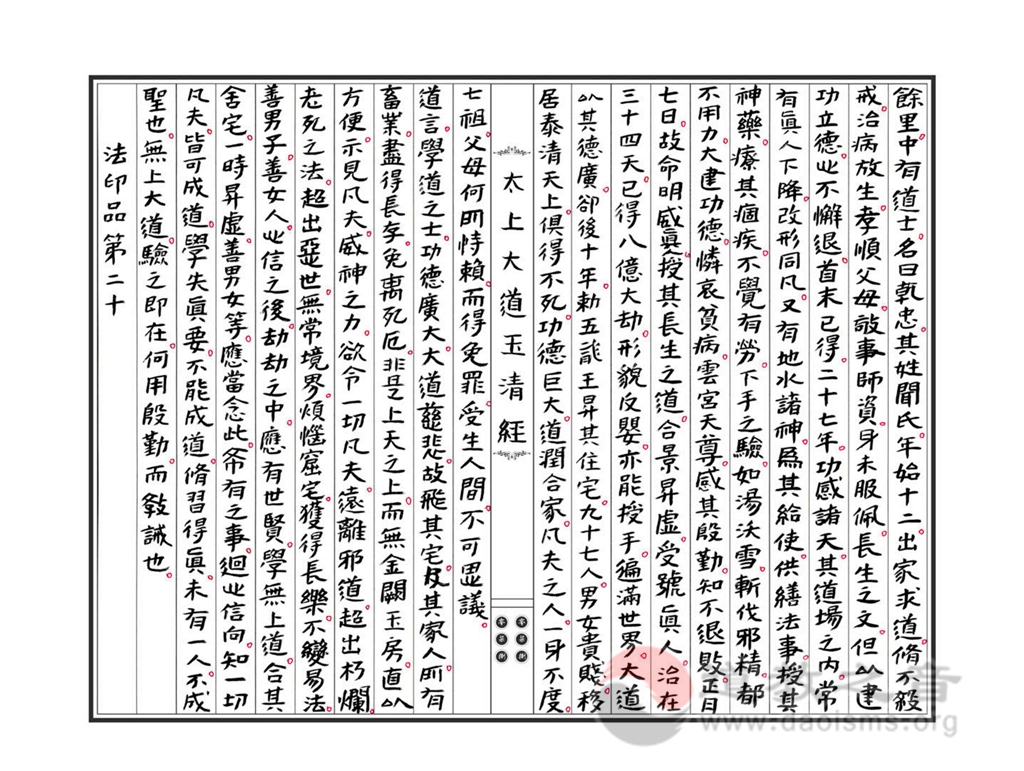 餘里中有道士名曰執忠其姓聞氏年始十二出家求道脩不殺
戒治病放生孝順父母敬事師資身未服佩長生之文但以建
功立德心不懈退首末已得二十七年功感諸天其道場之内常
有眞人下降改形同凡又有地水諸神爲其給使供繕法事授其
神藥療其痼疾不覺有勞下手之驗如湯沃雪斬伐邪精都
不用力大建功德憐哀貧病雲宮天尊感其殷勤知不退敗正月
七日故命明威眞授其長生之道合景昇虛受號眞人治在
三十四天已得八億大劫形貌反嬰亦能授手遍滿世界大道
以其德廣卻後十年勅五龍王昇其住宅九十七人男女貴賤移
居泰清天上俱得不死功德巨大道潤合家凡夫之人一身不度
太上大道玉清經
七祖父母何所恃賴而得免罪受生人間不可思議
道言學道之士功德廣大大道慈悲故飛其宅及其家人所有
畜業盡得長存免離死厄非是上天之上而無金闕玉房直以
方便示見凡夫威神之力欲令一切凡夫遠離邪道超出朽爛
老死之法超出惡世無常境界煩惱窟宅獲得長樂不變易法
善男子善女人心信之後劫劫之中應有世賢學無上道合其
舍宅一時昇虛善男女等應當念此希有之事迴心信向知一切
凡夫皆可成道學失眞要不能成道脩習得眞未有一人不成
聖也無上大道驗之即在何用殷勤而敎誡也
法印品第二十
道教之音
www.daoisms.org